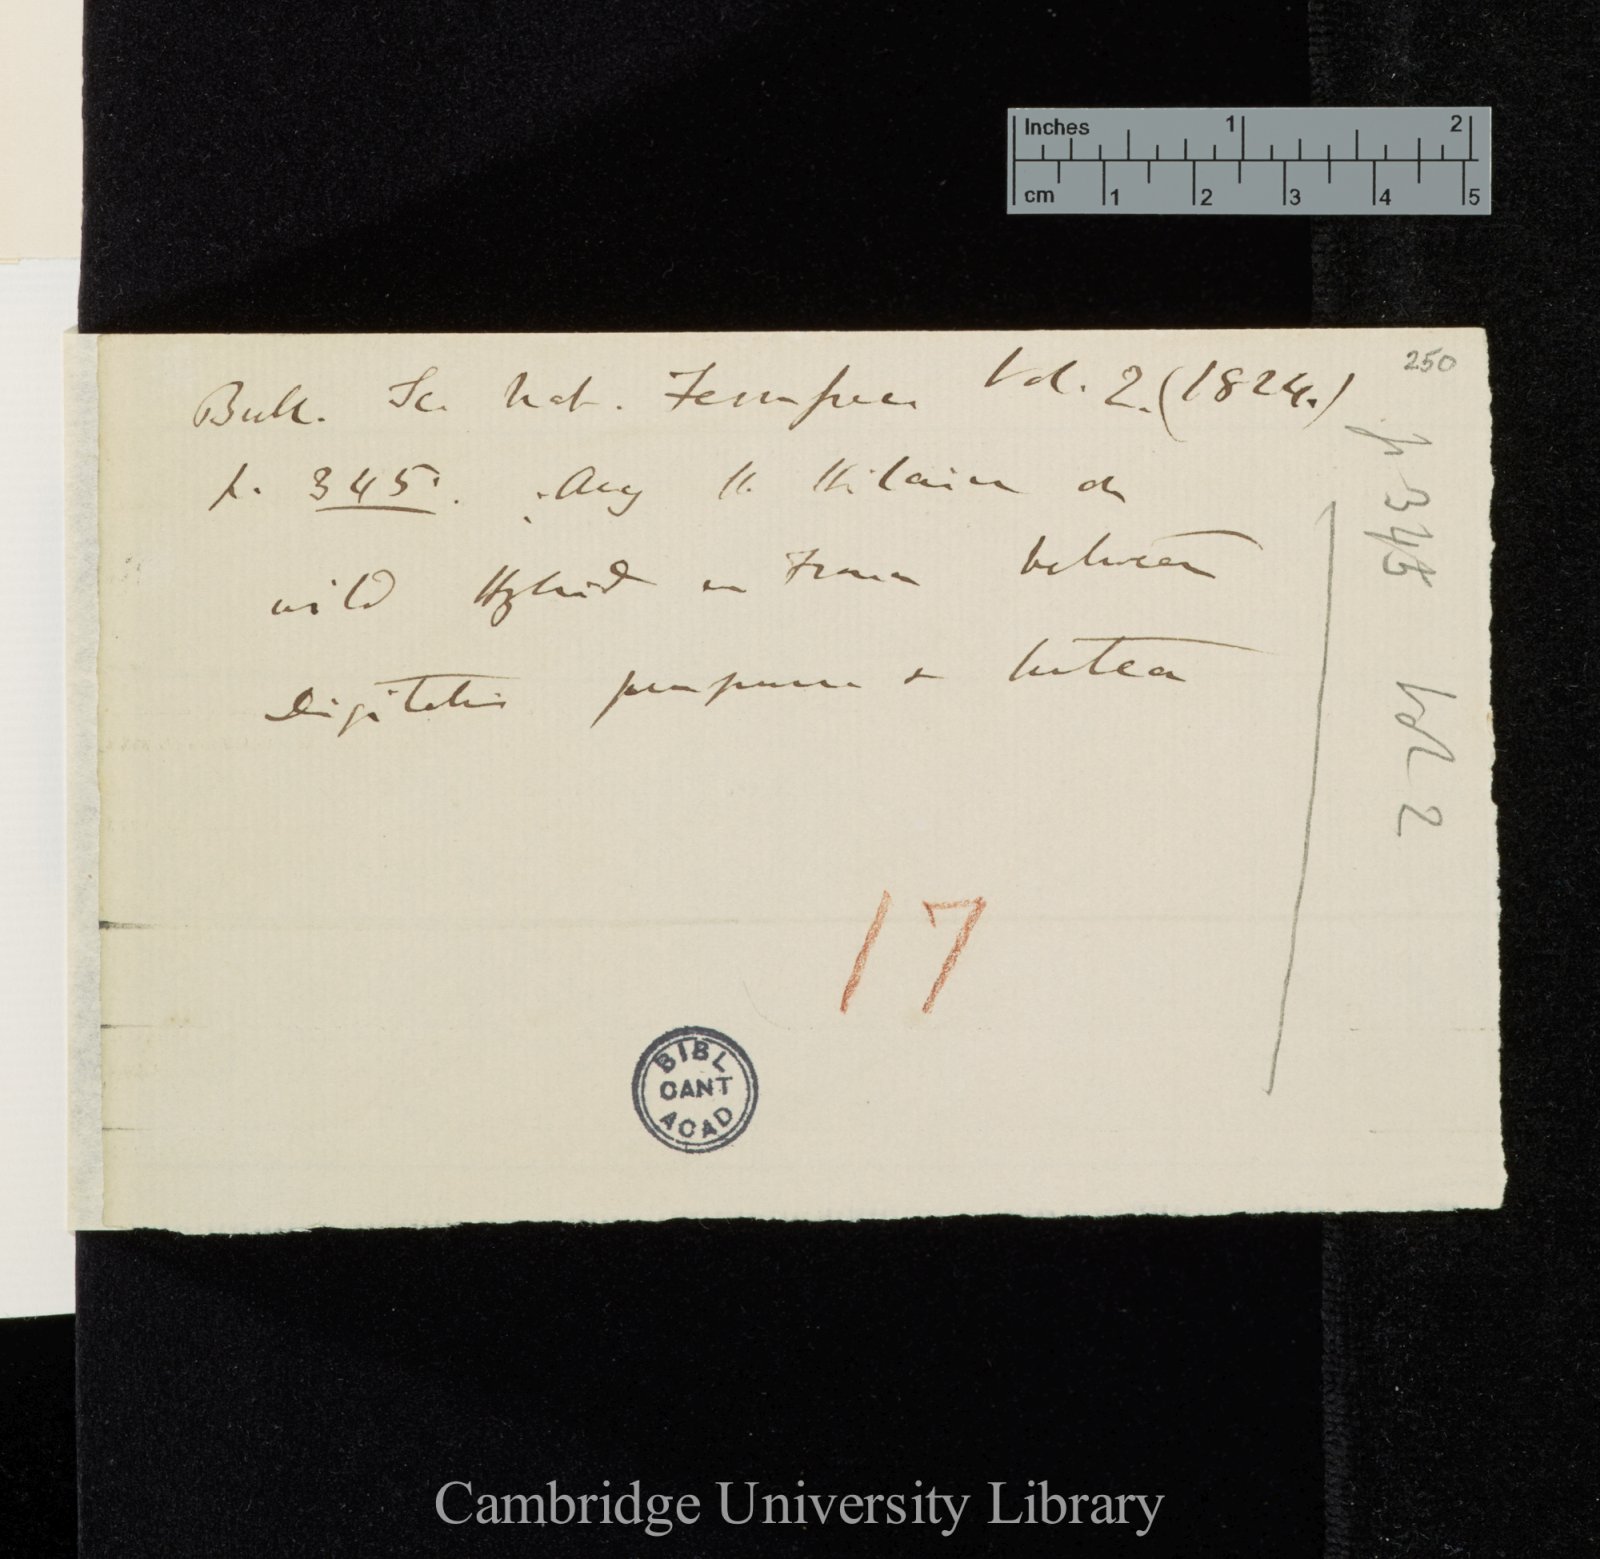 250
Bull. Sc. Nat. Ferussac Vol. 2. (1824.)
p. 345. Aug St. Hilaire on
wild Hybrid in France between
Digitalis purpurea & lutea
p 345 Vol 2
17
BIBL
CANT
ACAD
Inches 1 2
cm 1 2 3 4 5
Cambridge University Library